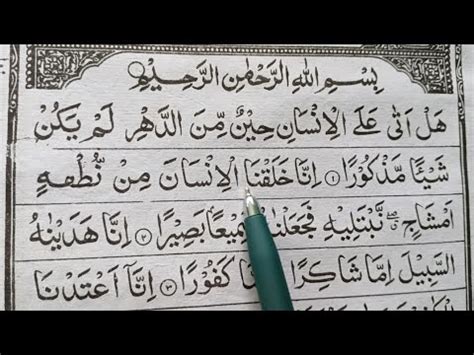 بِسْمِ اللهِ الرَّحْمٰنِ الرَّحِيْمِ
هَلْ اَتٰى عَلَى الْاِنْسَانِ حِيْنٌ مِّنَ الدَّهْرِ لَمْ يَكُنْ
شَيْئًا مَّذْكُوْرًا ۝١ اِنَّا خَلَقْنَا الْاِنْسَانَ مِنْ نُّطْفَةٍ
اَمْشَاجٍ ۖ نَّبْتَلِيْهِ فَجَعَلْنٰ مِيْعًۢا بَصِيْرًا ۝٢ اِنَّا هَدَيْنٰهُ
السَّبِيْلَ اِمَّا شَاكِرًا كَفُوْرًا ۝٣ اِنَّآ اَعْتَدْنَا